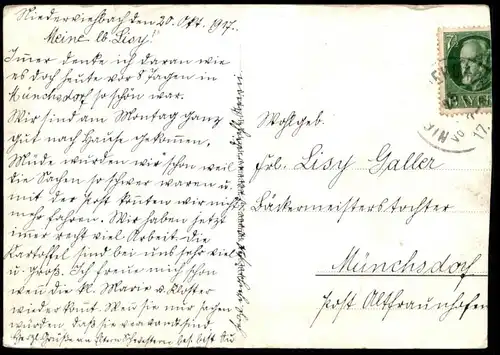 Niederviehbach den 20. Okt. 1917.
Meine lb. Lisy!
Immer denke ich daran wie
es doch heute vor 8 Tagen in
Münchsdorf so schön war.
Wir sind am Montag ganz
gut nach Hause gekommen.
Müde wurden wir schon weil
die Sachen so schwer waren u.
mit der Post konnten wir nicht
mehr fahren. Wir haben jetzt
immer recht viel Arbeit. Die
Kartoffel sind bei uns sehr viel
u. groß. Ich freue mich schon
wen die kl. Marie v. Kloster
wieder komt. Wen sie nur sagen
würden, daß sie
Wohlgeb.
Frl. Lisy Galler
Bäckermeisterstochter
Münchsdorf
Post Altfraunhofen
BAYERN